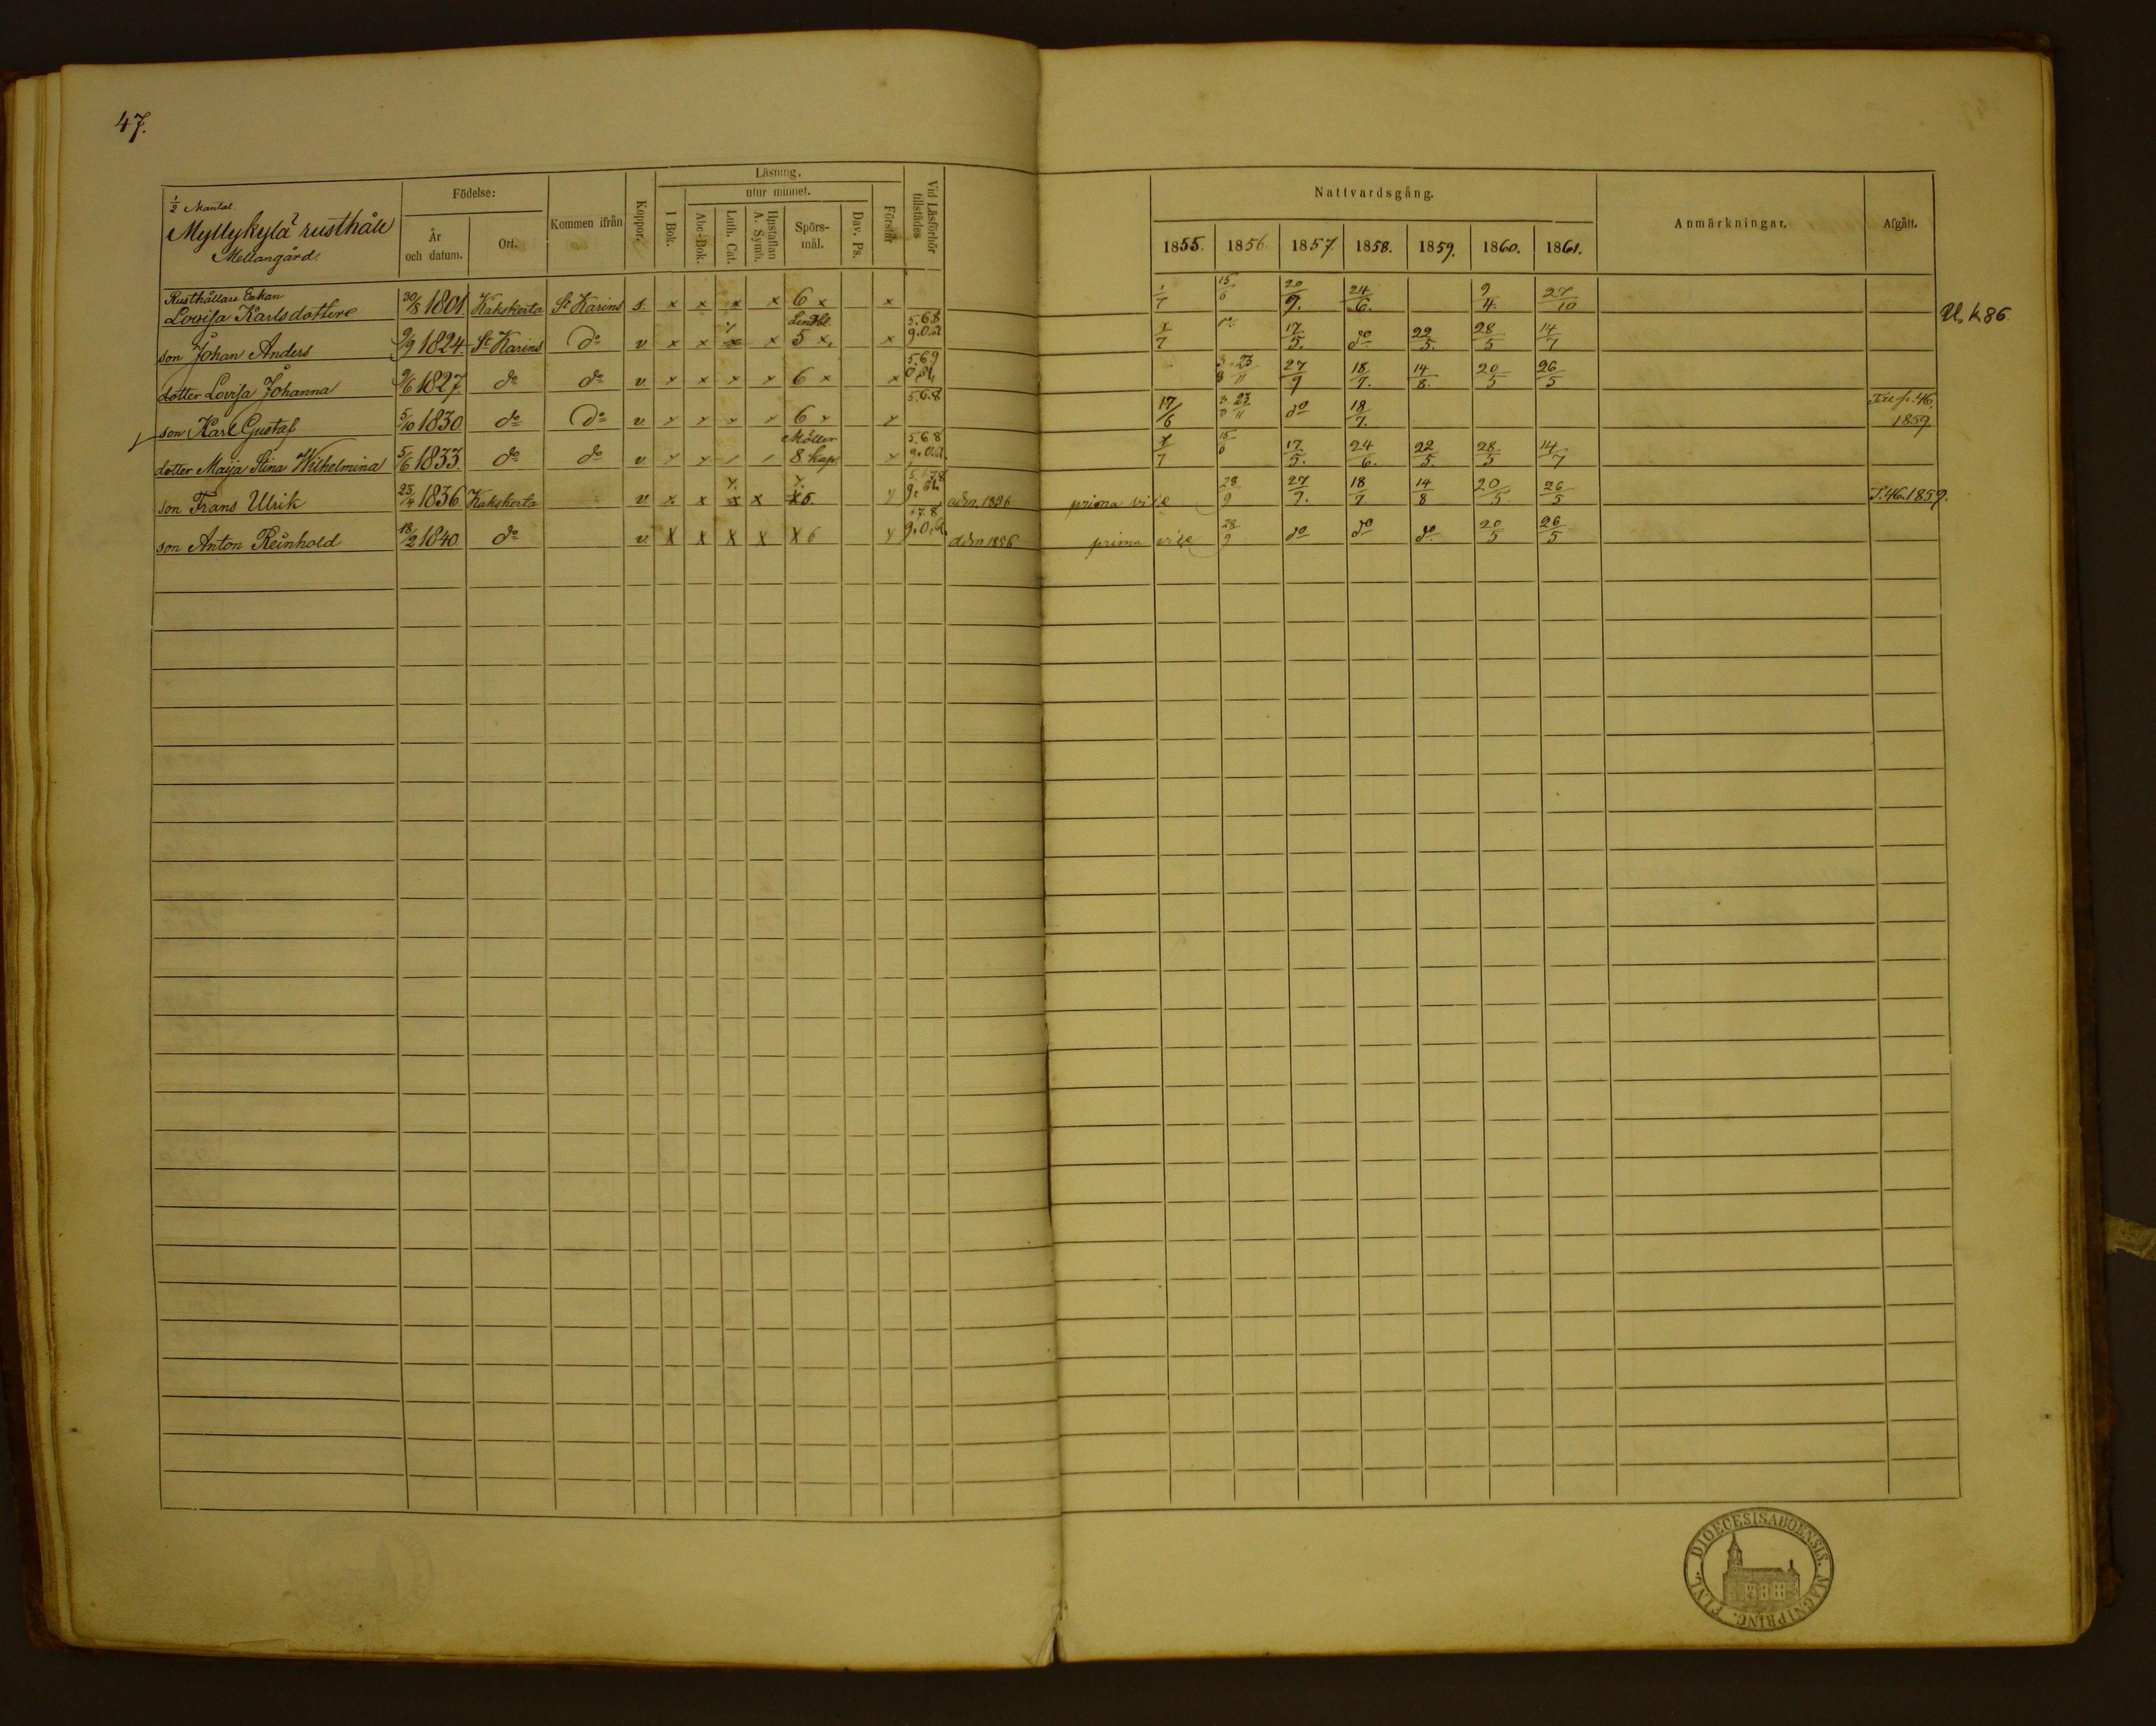 47.
½ Mantal.
Myllykylä rusthåll
Mellangård.
Födelse:
År och datum.
Ort.
Kommen ifrån
Koppor.
Läsning,
utur minnet.
I Bok.
Abc-Bok.
Luth. Cat.
Hustaflan A. Symb.
Spörs-mål.
Dav. Ps.
Förstår
Vid Läsförhör tillstädes
Nattvardsgång.
1855. 1856. 1857. 1858. 1859. 1860. 1861.
Anmärkningar.
Afgått.
Rusthållare Enkan
Lovisa Karlsdotter 30/8 1801. Kakskerta St Karins s. x x x x 6 x x 1/7 15/6 20/9. 24/6. 9/4. 27/10
U. k 86
Lindbl. 5.6.8
son Johan Anders 9/9 1824. St Karins do v x x x x 5 x x 9.0. 1/7 do 17/5. do 22/5. 28/5 14/7
5.6.9
dotter Lovisa Johanna 9/6 1827. do do v x x x x 6 x x 23/11 27/9 18/7. 14/8. 20/5 26/5
5.6.8
son Karl Gustaf 5/10 1830 do do v x x x x 6 x x 17/6 23/11 do 18/7. p. 46. 1859
Möller 5.6.8
dotter Maja Stina Wilhelmina 5/6 1833. do do v x x / / 8 kap. x 1/7 15/6 17/5. 24/6. 22/5. 28/5 14/7
son Frans Ulrik 25/4 1836. Kakskerta v x x x x x 6. x adm. 1856 prima vice 28/9 27/7. 18/7 14/8 20/5. 26/5 T. 46. 1859.
son Anton Reinhold 18/2 1840 do v x x x x x 6 x 9.0. adm 1856 prima vice 28/9 do do do 20/5 26/5
DIOECESIS ABOENSIS. MAGNI PRINC. FINL.